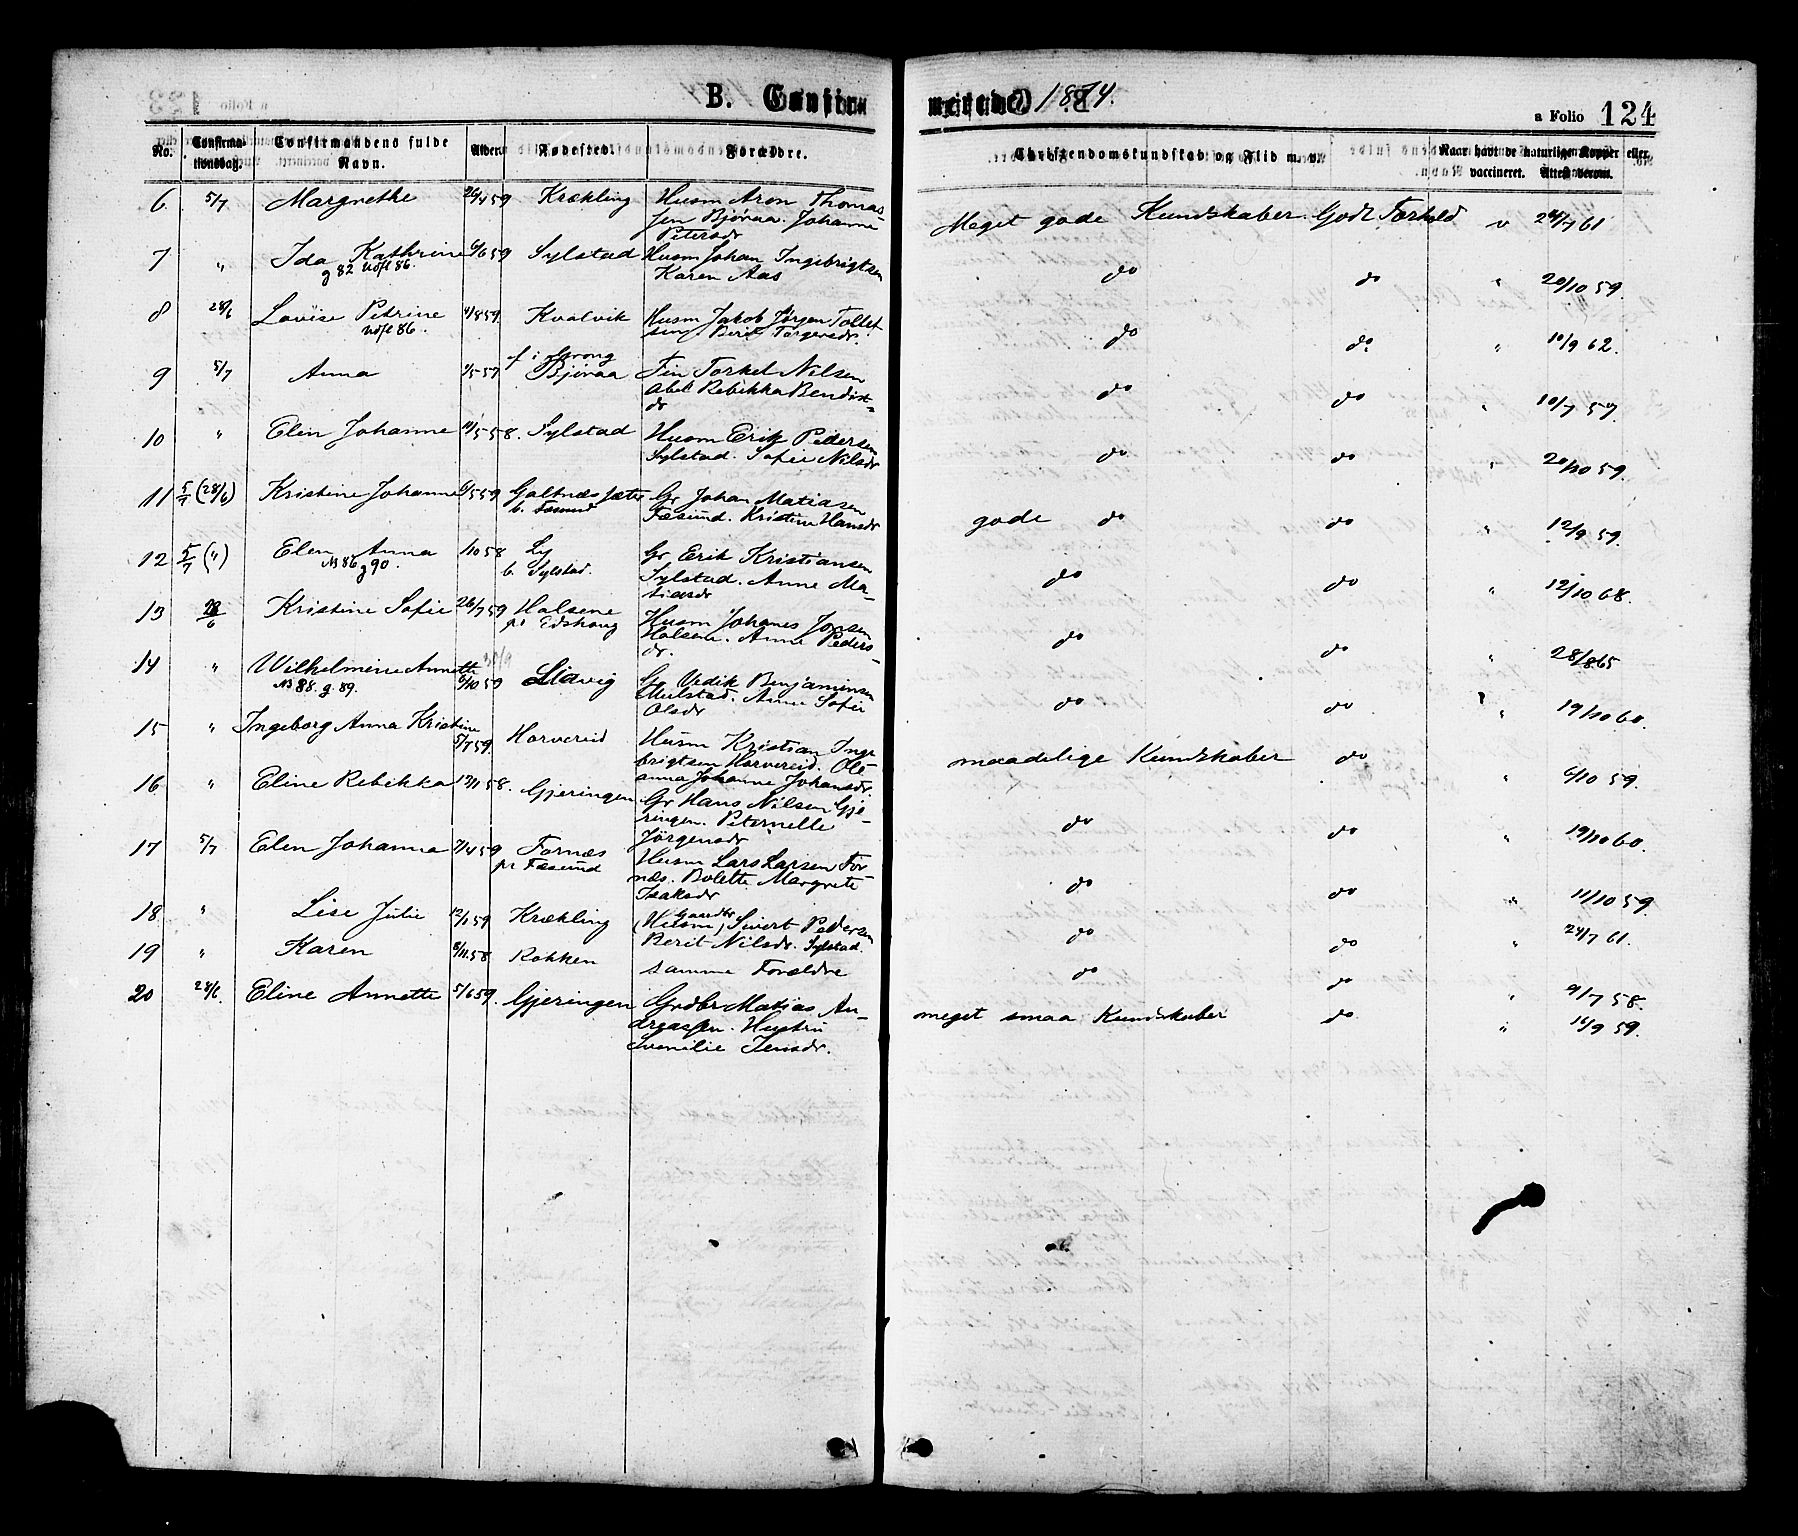 B. Confirmerede 1874.
a Folio 124
No. Confirmationsdag. Confirmandens fulde Navn. Alder. Fødested. Forældre. Christendomskundskab og Flid m. v. Naar havt de naturlige Kopper eller vaccineret. Attest derom.
6. 5/7 Margrethe 26/4 59 Krækling Husm Aron Thomas- Meget gode Kundskaber. Godt Forhold v 24/7 61
sen Bjøraa. Johanna
Petersdr
7 " Ida Kathrine 6/6 59 Sylstad Husm Johan Ingebrigtsen do do " 20/10 59.
g 82 Karen Aas
8 28/6 Lovise Petrine 4/8 59. Kvalvik Husm Jakob Jørgen Tollef do do " 10/9 62.
sen Berit Torgersdr.
9 5/7 Anna 1/5 57 Bjøraa Fin Torkel Nilsen do do " 10/7 57
Abel Rebikka Bendikt-
dr
10 " Elen Johanne 11/5 58. Sylstad Husm Erik Pedersen do do " 20/10 59.
Sylstad. Sofie Nilsdr
11 5/7 (28/6) Kristine Johanne 6/5 59 Galtnæs sæter Gr Johan Matiasen gode do do " 12/9 59.
b. Fæsund Fæsund. Kristine Hansdr
12 5/7 (") Elen Anna 1/10 58 Ly Gr Erik Kristiansen do do " 12/10 68.
N 86 g 90. b. Sylstad. Sylstad. Anne Ma-
tiasdr
13 28/6 Kristine Sofie 26/7 59 Halsene Husm Johanes Jonsen do do " 28/8 65
pr Edshaug Halsene. Anne Peders-
dr.
14 " Wilhelmine Annette 6/10 59 Lidvig Gr Vedik Benjaminsen do do " 19/10 60.
N 88. g. 89. Mulstad. Anne Sofie
Olsdr
15 " Ingeborg Anna Kristine 5/7 59. Horvereid Husm Kristian Inge maadelige Kundskaber do " 6/10 59.
brigtsen Horvereid. Ole-
anna Johanne Johansdr.
16 " Eline Rebikka 12/11 58. Gjeringen Gr Hans Nilsen Gje- do do " 19/10 60.
ringen. Peternelle
Jørgensdr
17 5/7 Elen Johanna 7/4 59 Fornæs Husm Lars Larsen For do do " 11/10 59.
pr Fæsund næs. Bolette Margrete
Isaksdr
18 " Lise Julie 12/1 59 Krækling (Husm) Gaardbr Sivert Pedersen do do " 24/7 61.
Berit Nilsdr. Sylstad
19 " Karen 8/11 58 Rokken samme Forældre do do " 9/7 58.
20 28/6. Eline Annette 5/6 59. Gjeringen Grdbr Matias An- meget smaa Kundskaber do " 16/9 59.
dreassen. Hustru
Jensdr.